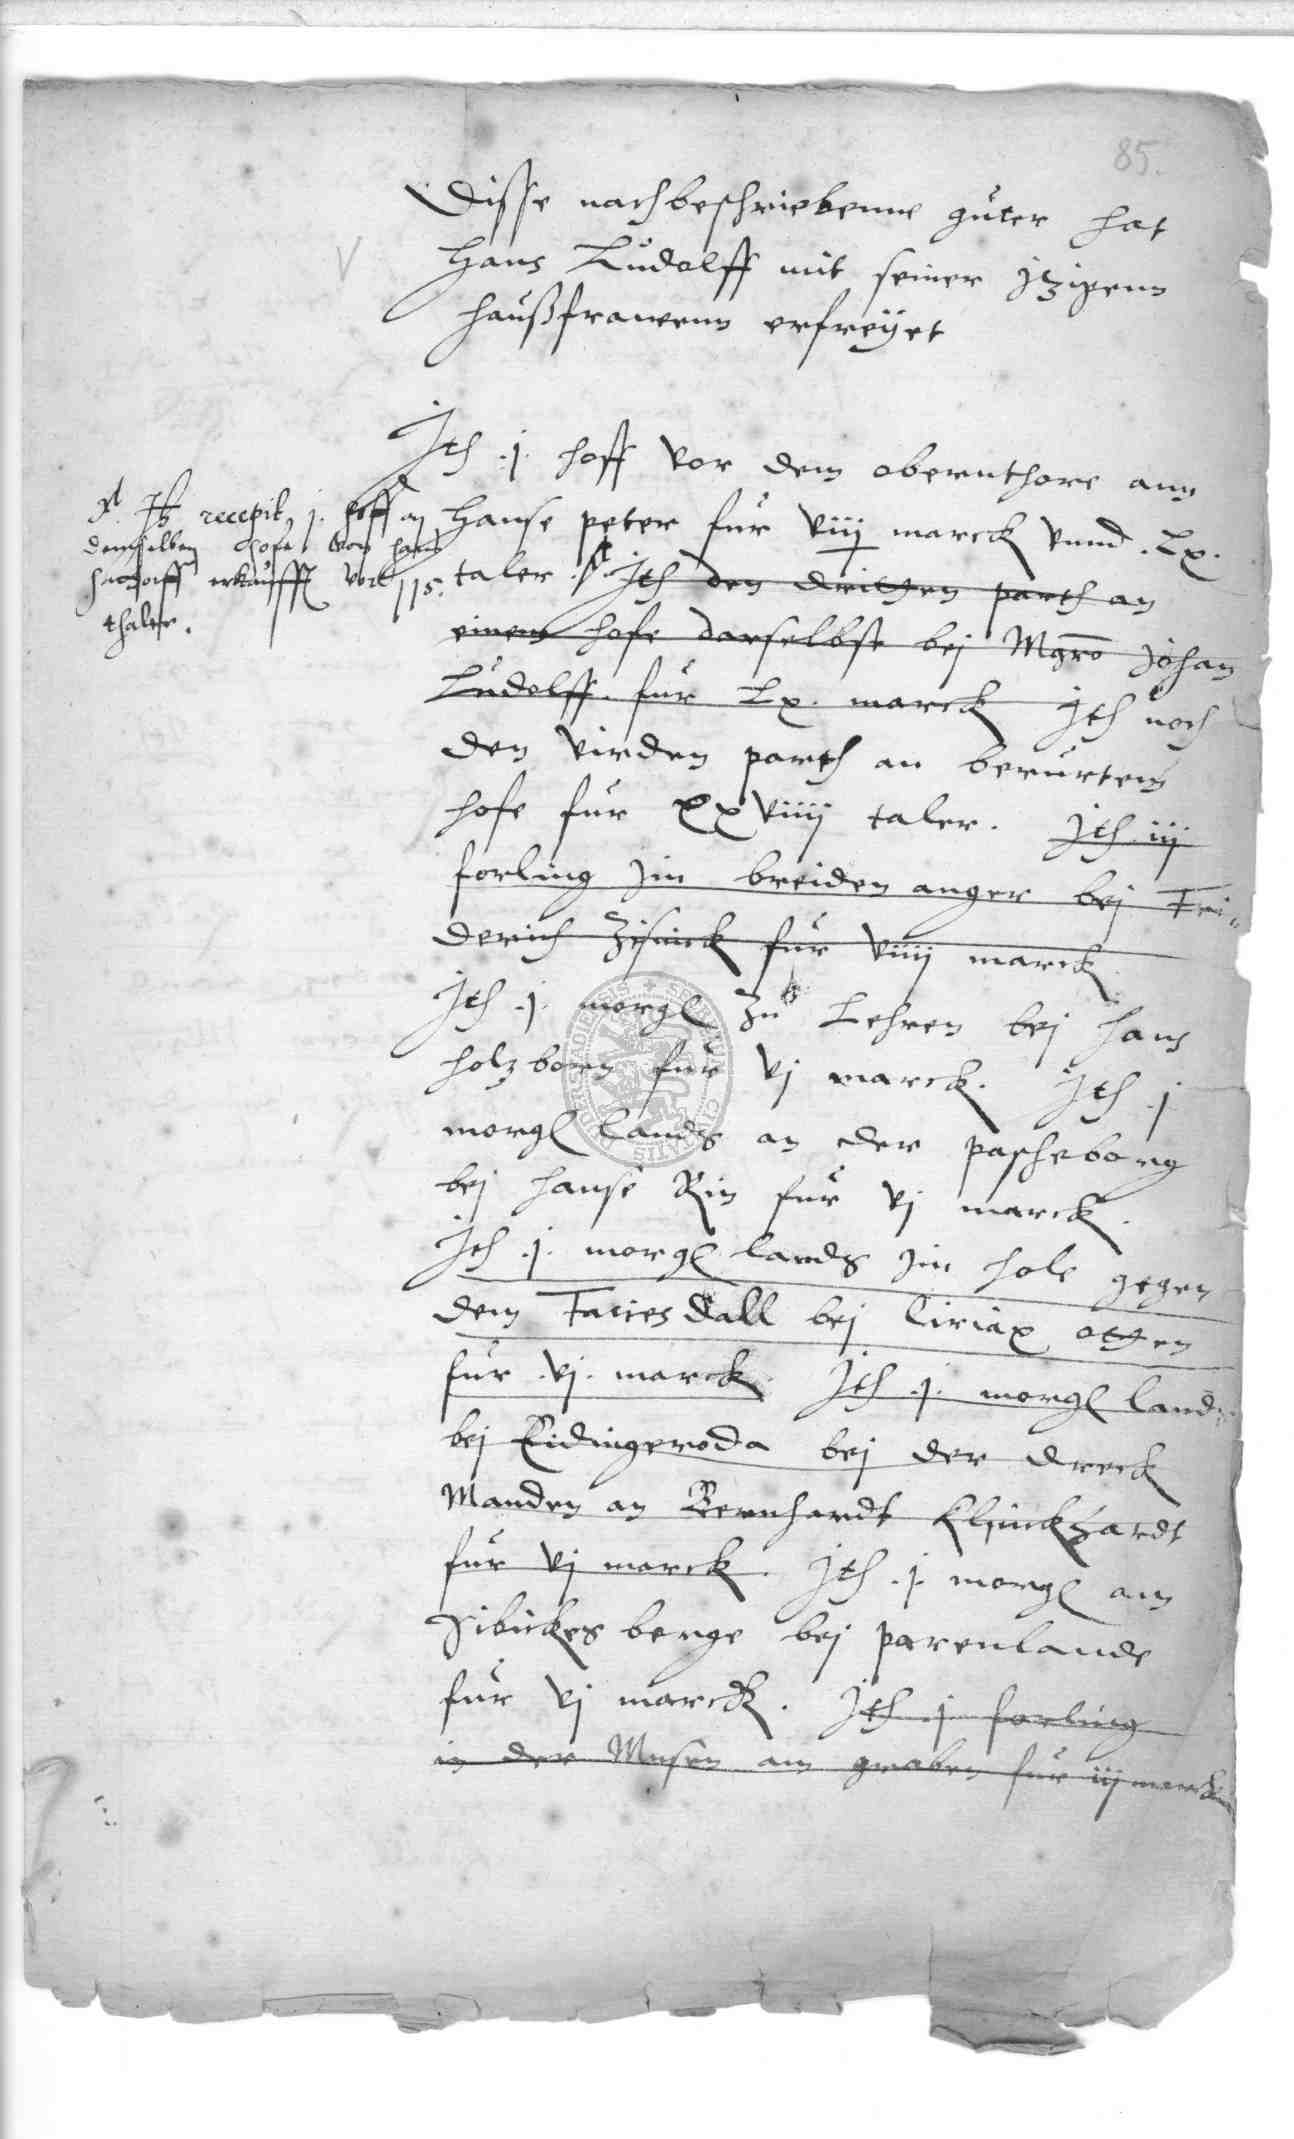 85.
Disse nachbeschriebenne güter hat
Hans Lüdolff mit seiner jtzigenn
haußfrawenn erfreÿet
Jth .j. hoff vor dem obernthore ann
Hanse peter für viij marck vnnd .Lx.
taler. Jth den dritten parth an
einem hofe darselbst bej Mgro Johan
Lüdolff. für Lx. marck Jth noch
den virden parth an berürtem
hofe für xxviiij taler. Jth iij
forling jm breiden anger bej Fri¬
derich Zisinck für viiij marck
Jth .j. morg Zu Lehren bej hans
holzborn für vj marck. Jth .j
morg lands an der pascheborg
bej hanse Rin für vj marck.
Jth .j. morg lands jm hole gegen
dem Faciesdall bej Ciriax otten
für .vj. marck Jth .j. morg lands
bej Eidingeroda bej der dreck
Wanden an Bernhardt Klinckhardt
für vj marck. Jth .j. morg am
Sibickes berge bej parenlande
für vj marck. Jth .j forling
in der Musen am graben für iij marck
Jtz recepit j. hoff an
demselben hofe von hans
erkaufft vor 115.
thaler.
SIGILLUM CIVITATIS DUDERSTADIENSIS